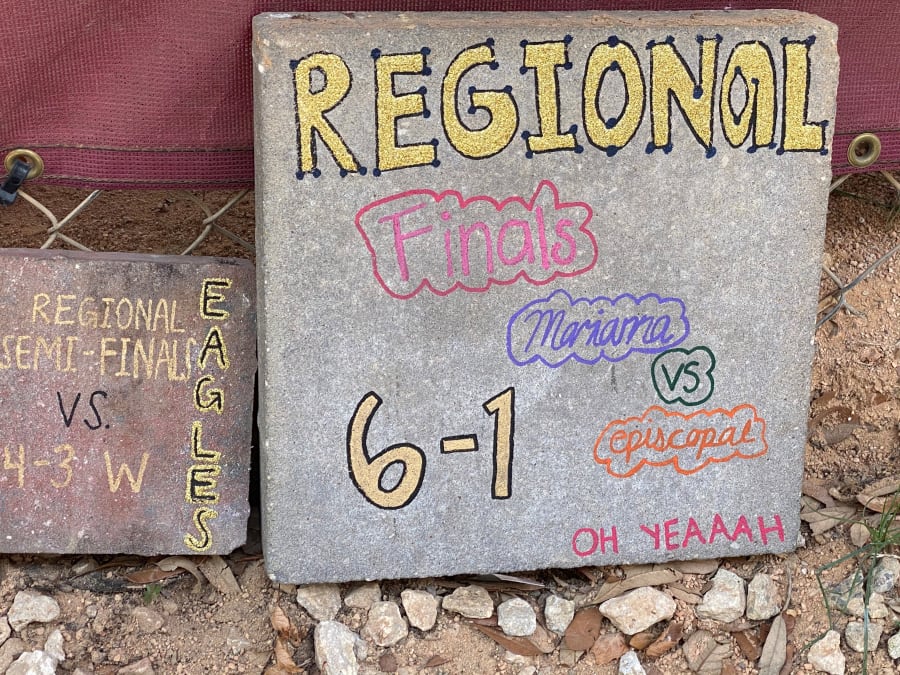 REGIONAL
Finals
Marianna
VS
Episcopal
6-1
OH YEAAAH
REGIONAL
SEMI-FINALS
VS.
4-3 W
EAGLES